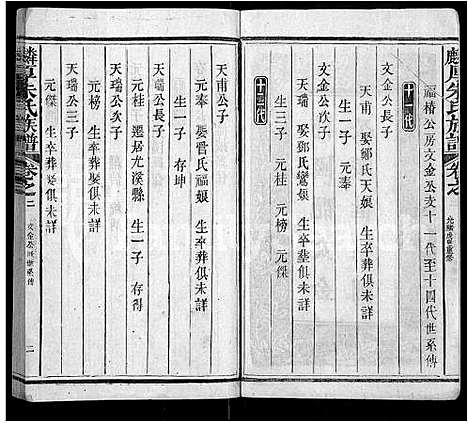 麟阜朱氏族譜 卷之
福椿公房文金公支十一代至十四代世系傳
十一代
文金公長子
天甫 娶鄭氏天娘 生卒葬俱未詳
生一子 元奉
文金公次子
天瑞 娶鄒氏鸞娘 生卒葬俱未詳
生三子 元桂 元榜 元傑
十二代
天甫公子
元奉 娶晋氏福娘 生卒葬俱未詳
生一子 存坤
天瑞公長子
元桂 遷居尤溪縣 生一子 存得
天瑞公次子
元榜 生卒葬娶俱未詳
天瑞公三子
元傑 生卒葬娶俱未詳
麟阜朱氏族譜 卷之二
文金公州世系傳
二